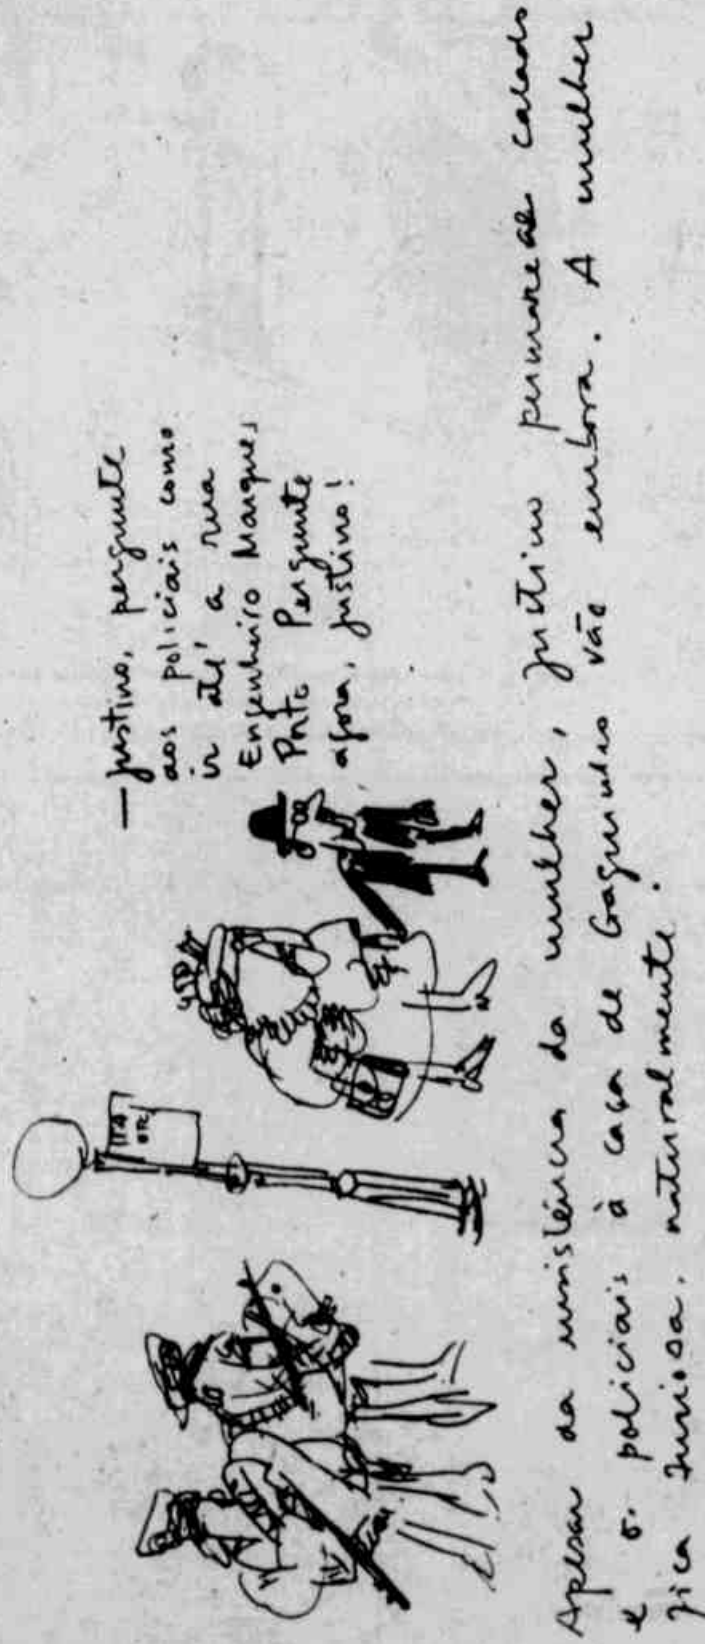 — Justino, pergunte
aos policiais como
ir até a rua
Engenheiro Marques
Porto Pergunte
agora, Justino!
Apesar da insistência da mulher, Justino permanece calado
e os policiais à caça de Gaguinho vão embora. A mulher
fica furiosa, naturalmente.